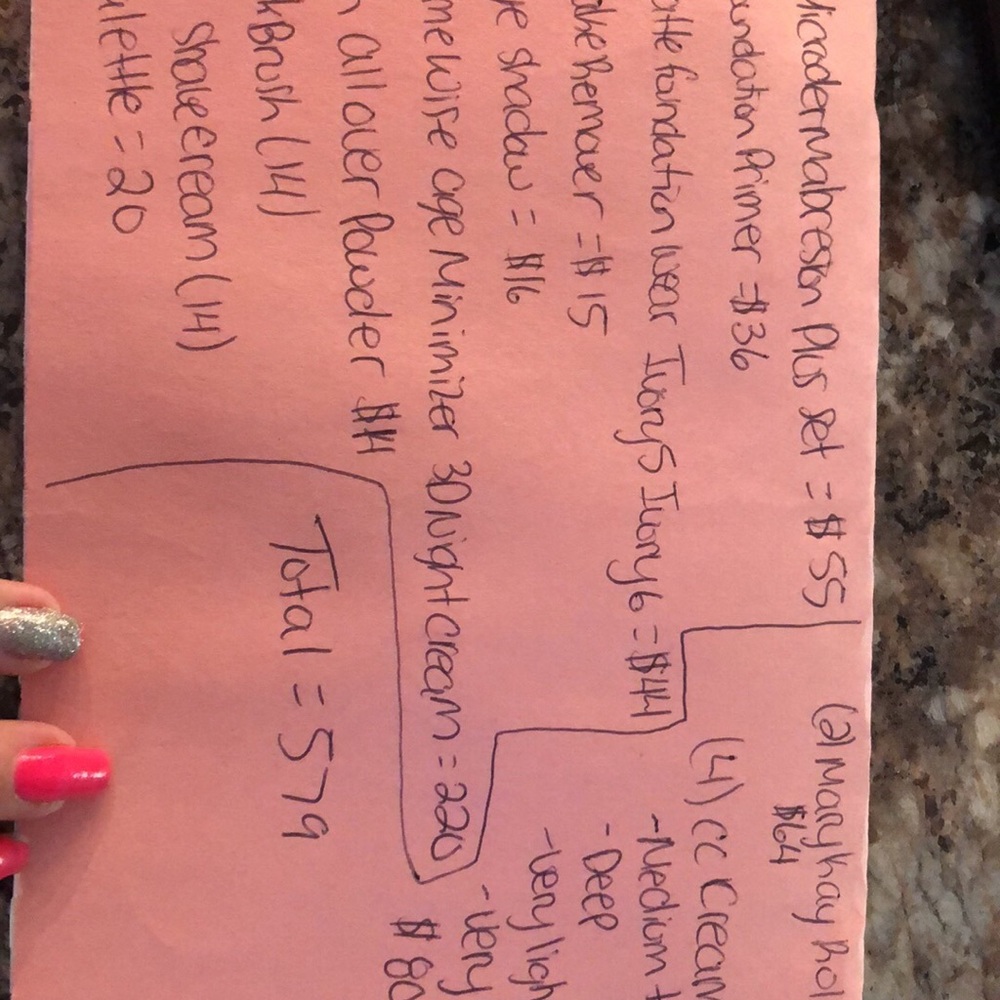 Microdermabresion Plus set = $55
oundation Primer = $36
atte foundation wear Ivory5 Ivory6 = $44
Remover = $15
ye shadow = $16
me wise age Minimizer 3D Night cream = 220
n all over Powder $14
kBrush (14)
Shave cream (14)
ulette = 20
Total = 579
(2) Mary Khay Rol
$64
(4) CC Cream
- Medium t
- Deep
- very ligh
- very
$ 80